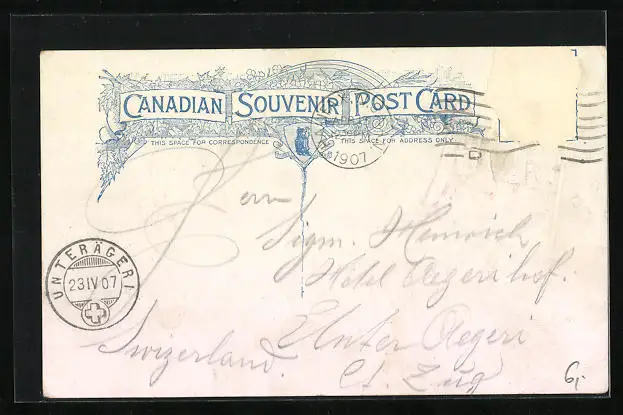 CANADIAN SOUVENIR POST CARD
THIS SPACE FOR CORRESPONDENCE THIS SPACE FOR ADDRESS ONLY
1907
Herrn
Sigm. Heinrich
Hotel Aegerihof.
UNTERÄGERI
23 IV 07
Unter Aegeri
Swizerland.
Ct. Zug
6,-